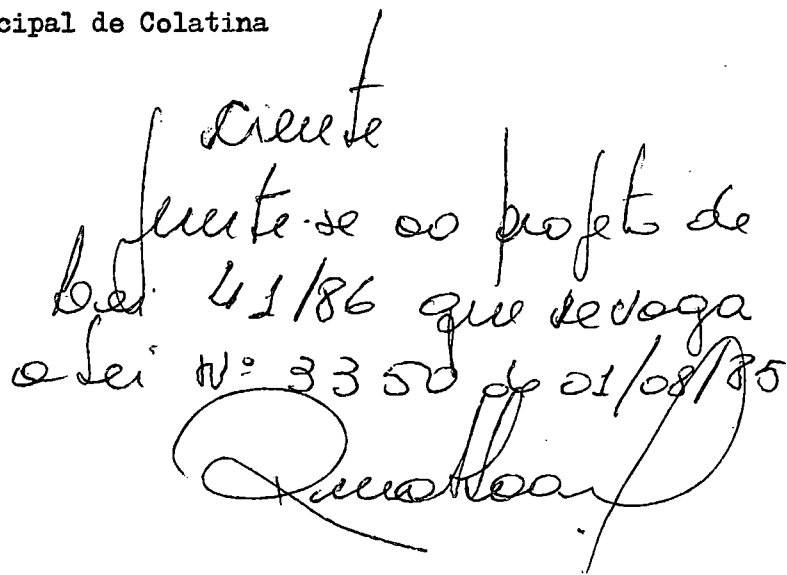 cipal de Colatina
Ciente
Junte-se ao projeto de
Lei 41/86 que revoga
a Lei Nº 3350 de 01/08/85